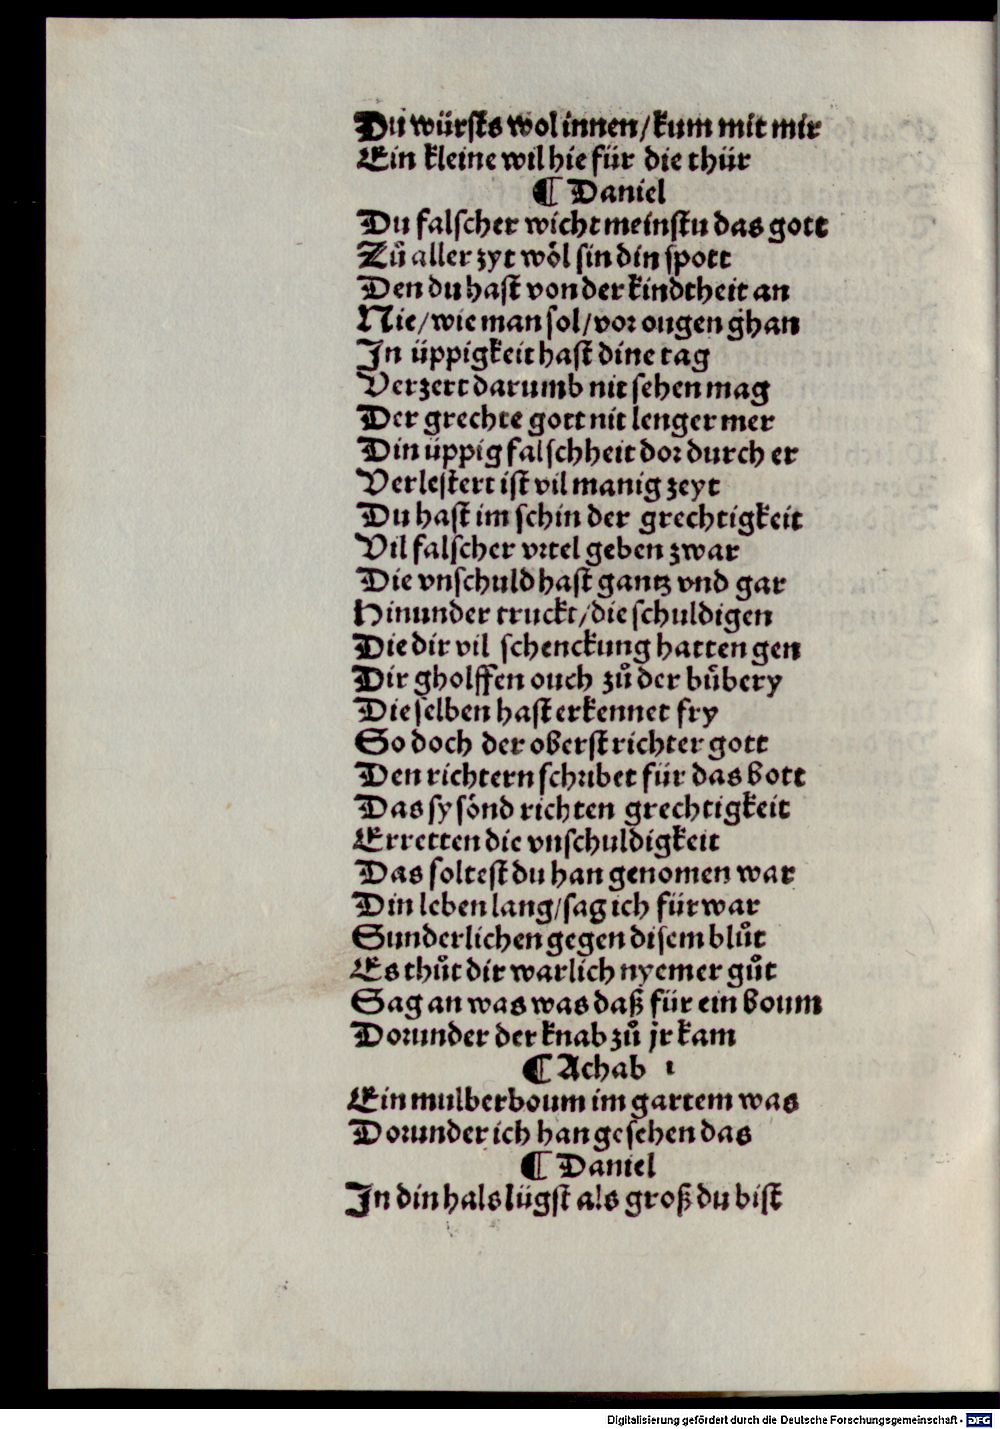 Du würsts wol innen/kum mit mir
Ein kleine wil hie für die thür
¶ Daniel
Du falscher wicht meinstu das gott
Zů aller zyt wöl sin din spott
Den du hast von der kindtheit an
Nie/wie man sol/vor ougen ghan
In üppigkeit hast dine tag
Verzert darumb nit sehen mag
Der grechte gott nit lenger mer
Din üppig falschheit dor durch er
Verlestert ist vil manig zeyt
Du hast im schin der grechtigkeit
Vil falscher vrtel geben zwar
Die vnschuld hast gantz vnd gar
Hinunder truckt/die schuldigen
Die dir vil schenckung hatten gen
Dir gholffen ouch zů der bůbery
Die selben hast erkennet fry
So doch der oberst richter gott
Den richtern schribet für das bott
Das sy sönd richten grechtigkeit
Erretten die vnschuldigkeit
Das soltest du han genomen war
Din leben lang/sag ich fürwar
Sunderlichen gegen disem blůt
Es thůt dir warlich nyemer gůt
Sag an was was daß für ein boum
Dorunder der knab zů jr kam
¶ Achab 1
Ein mulberboum im gartem was
Dorunder ich han gesehen das
¶ Daniel
In din hals lügst als groß du bist
Digitalisierung gefördert durch die Deutsche Forschungsgemeinschaft - DFG